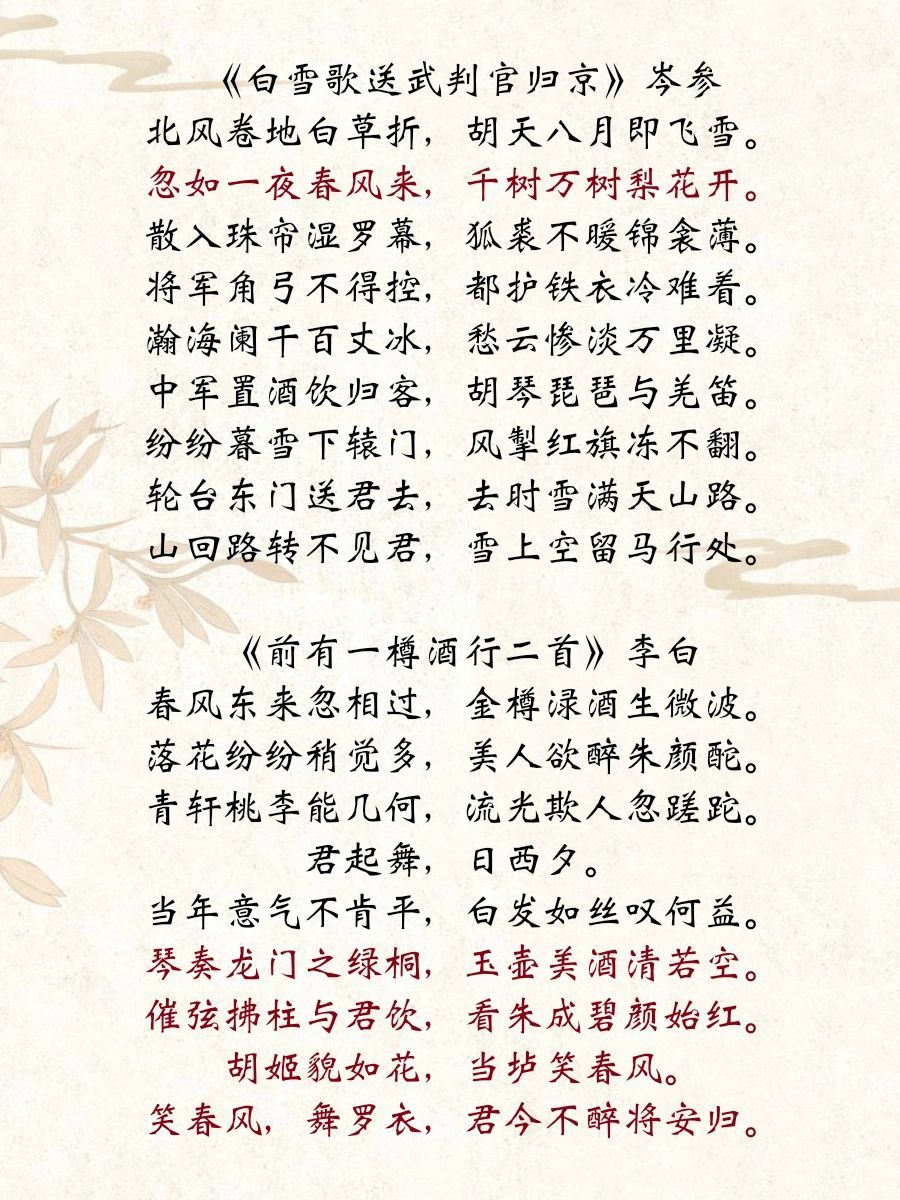 《白雪歌送武判官归京》岑参
北风卷地白草折，胡天八月即飞雪。
忽如一夜春风来，千树万树梨花开。
散入珠帘湿罗幕，狐裘不暖锦衾薄。
将军角弓不得控，都护铁衣冷难着。
瀚海阑干百丈冰，愁云惨淡万里凝。
中军置酒饮归客，胡琴琵琶与羌笛。
纷纷暮雪下辕门，风掣红旗冻不翻。
轮台东门送君去，去时雪满天山路。
山回路转不见君，雪上空留马行处。
《前有一樽酒行二首》李白
春风东来忽相过，金樽渌酒生微波。
落花纷纷稍觉多，美人欲醉朱颜酡。
青轩桃李能几何，流光欺人忽蹉跎。
君起舞，日西夕。
当年意气不肯平，白发如丝叹何益。
琴奏龙门之绿桐，玉壶美酒清若空。
催弦拂柱与君饮，看朱成碧颜始红。
胡姬貌如花，当垆笑春风。
笑春风，舞罗衣，君今不醉将安归。